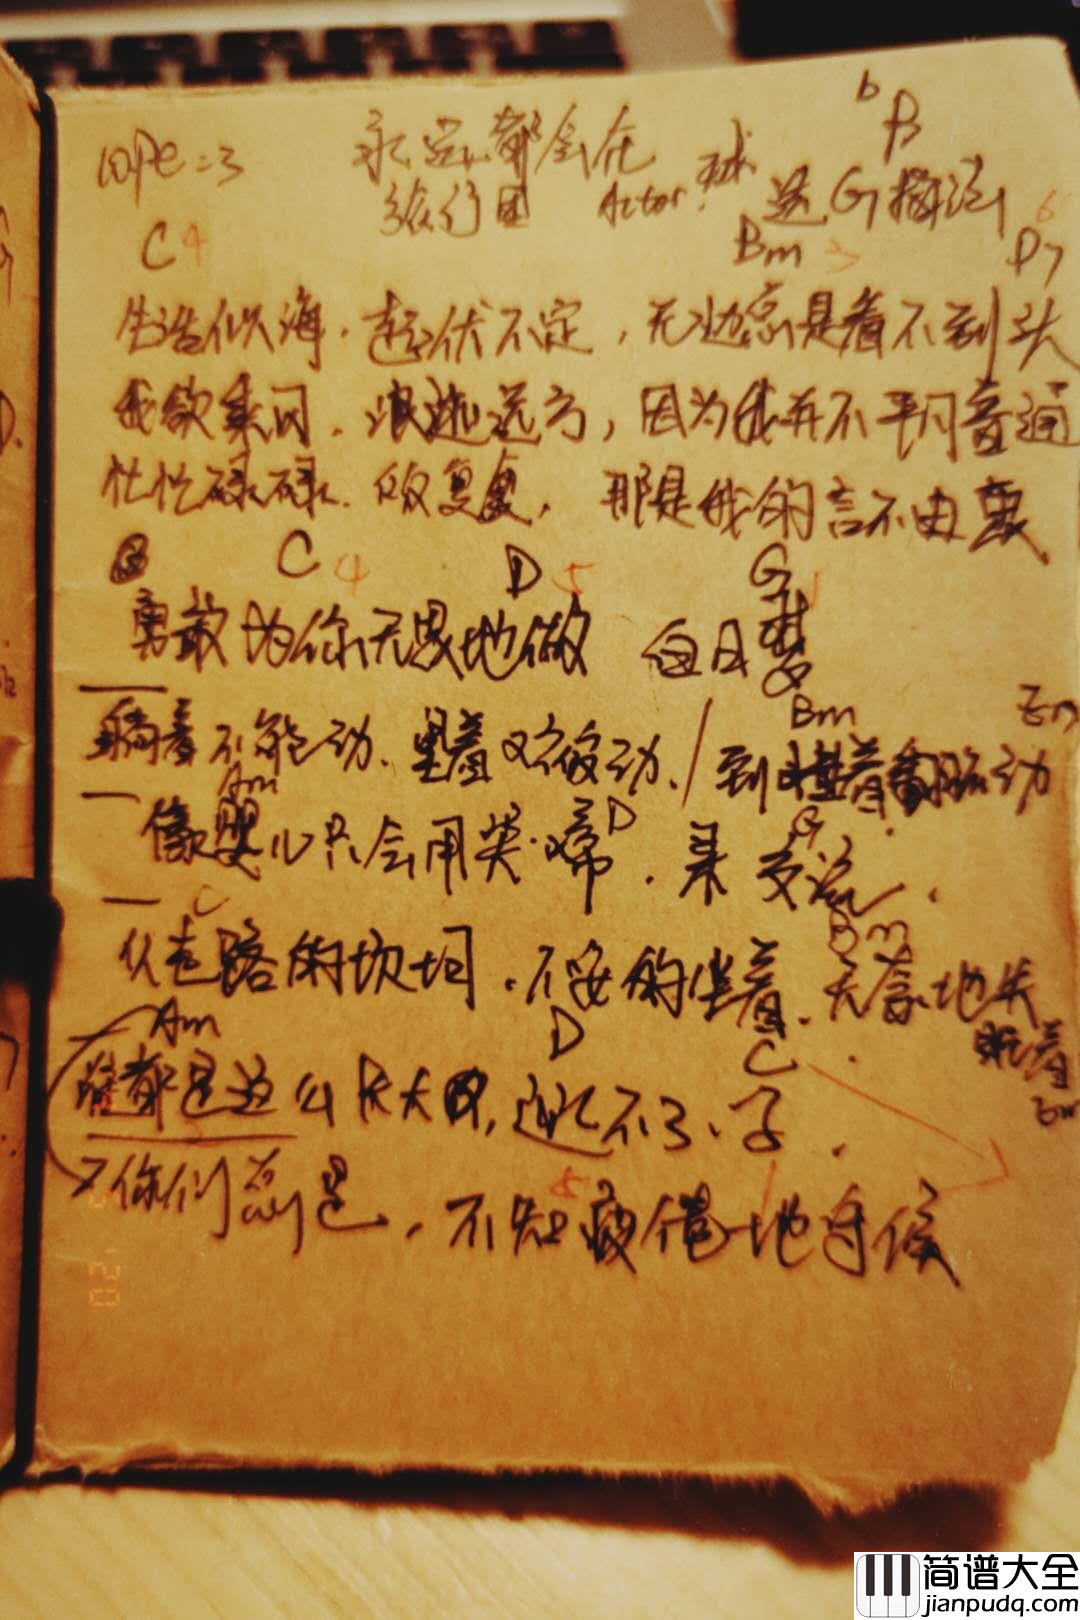 cope=3 永远都会在 ♭B
旅行团 Actor: 球 选G指法
C 4 Bm 3 D7 6
生活似海.起伏不定,无边总是看不到头
我欲乘闪.浪迹远方,因为我并不平凡普通
忙忙碌碌.反反复复,那是我的言不由衷
C 4 D 5 G 1
勇敢为你无畏地做 白日梦
Bm Em
躺着不能动.坐着又不能动./到 着 动
Am D G
像婴儿只会用哭啼.来交流.
C Bm
从走路的坎坷.不安的坐着.无奈地失眠着
Am D C Em
都是这么 大 ,逃不了.子.
你们总是,不知疲倦地守候
5 1
'20
简谱大全
jianpudq.com